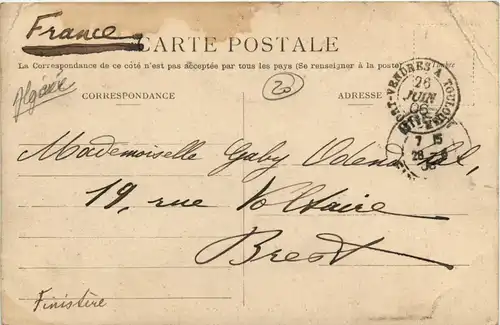 France
CARTE POSTALE
La Correspondance de ce côté n'est pas acceptée par tous les pays (Se renseigner à la poste)
Timbre
Algérie
CORRESPONDANCE
20
ADRESSE
PORT-VENDRES A
26
JUIN
06
7 15
28
Mademoiselle Gaby
19, rue Voltaire
Brest
Finistère